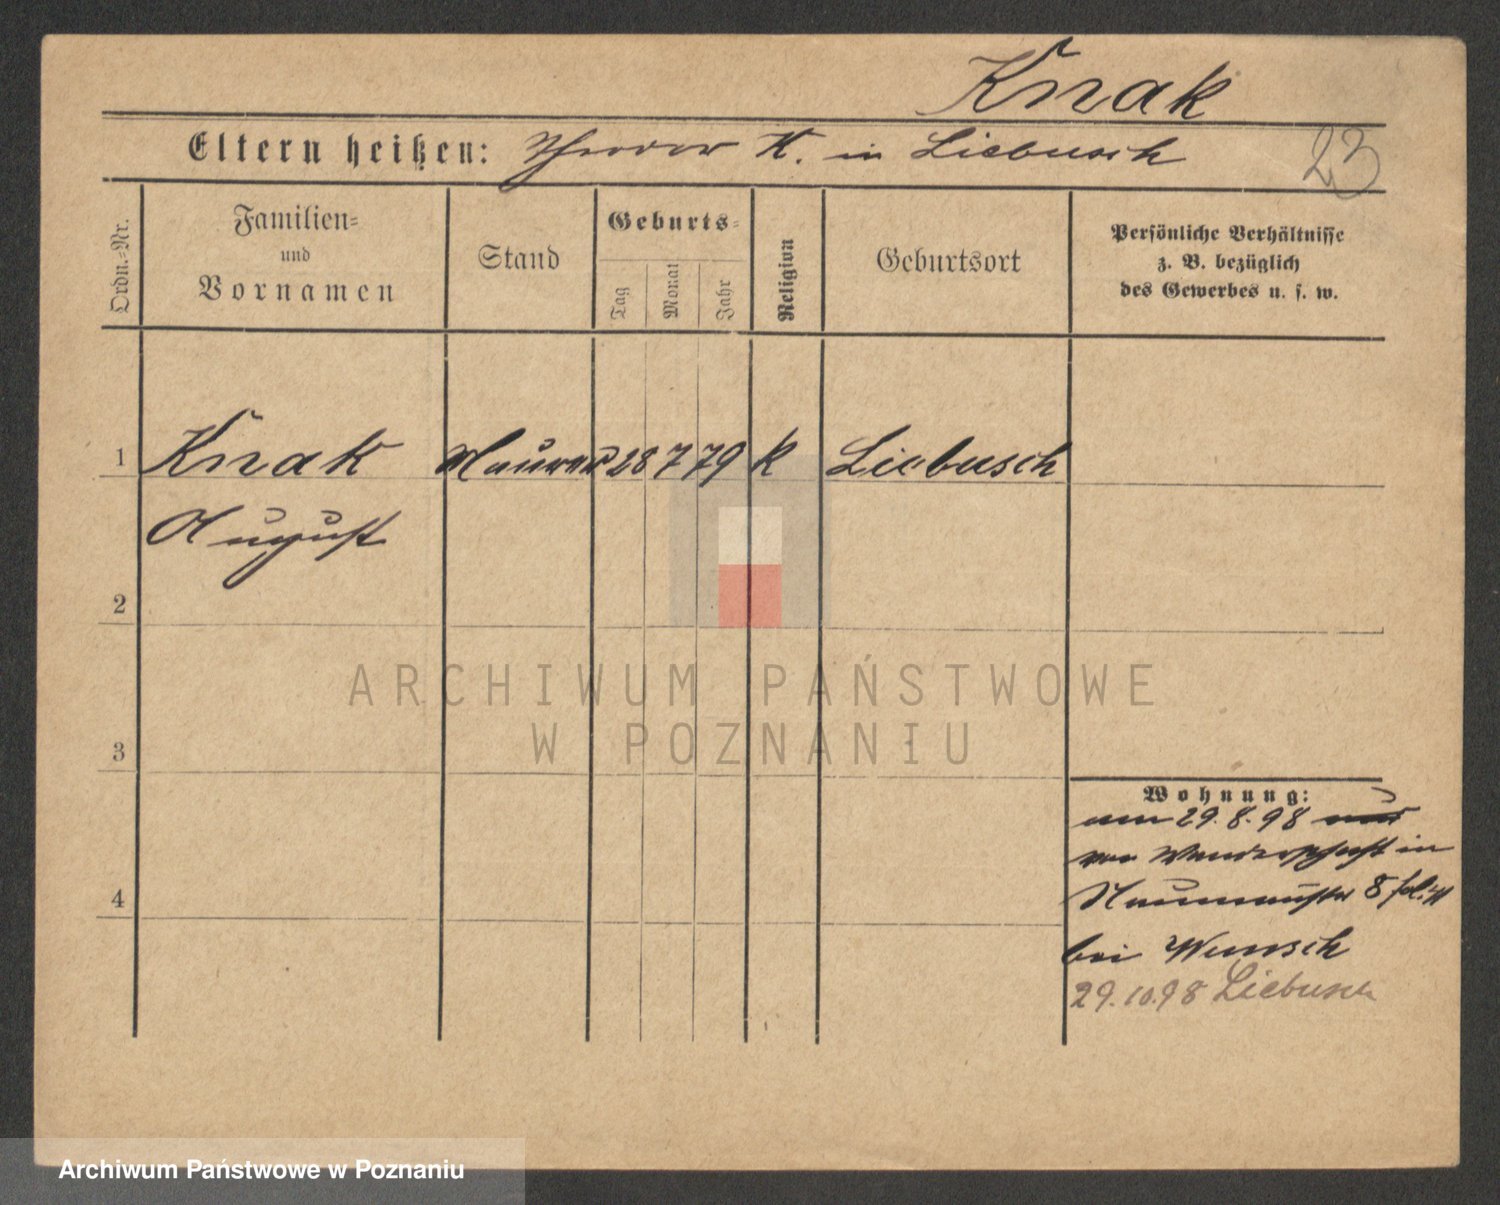 Knak
Eltern heißen: Theodor K. in Liebusch
23
Ordn.-Nr.
Familien-
und
Vornamen
Stand
Geburts-
Tag
Monat
Jahr
Religion
Geburtsort
Persönliche Verhältnisse
z. B. bezüglich
des Gewerbes u. s. w.
1 Knak Maurer 28 7 79 k Liebusch
August
2
3
4
ARCHIWUM PAŃSTWOWE
W POZNANIU
Wohnung:
am 29.8.98
von Wanderschaft in
8
bei Wunsch
29.10.98 Liebusch
Archiwum Państwowe w Poznaniu